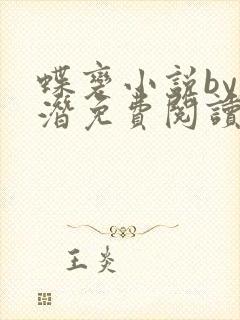 蝶変小説by
潜免費閱讀
王炎